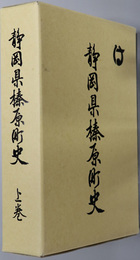 静岡県榛原町史
静岡県榛原町史
上巻